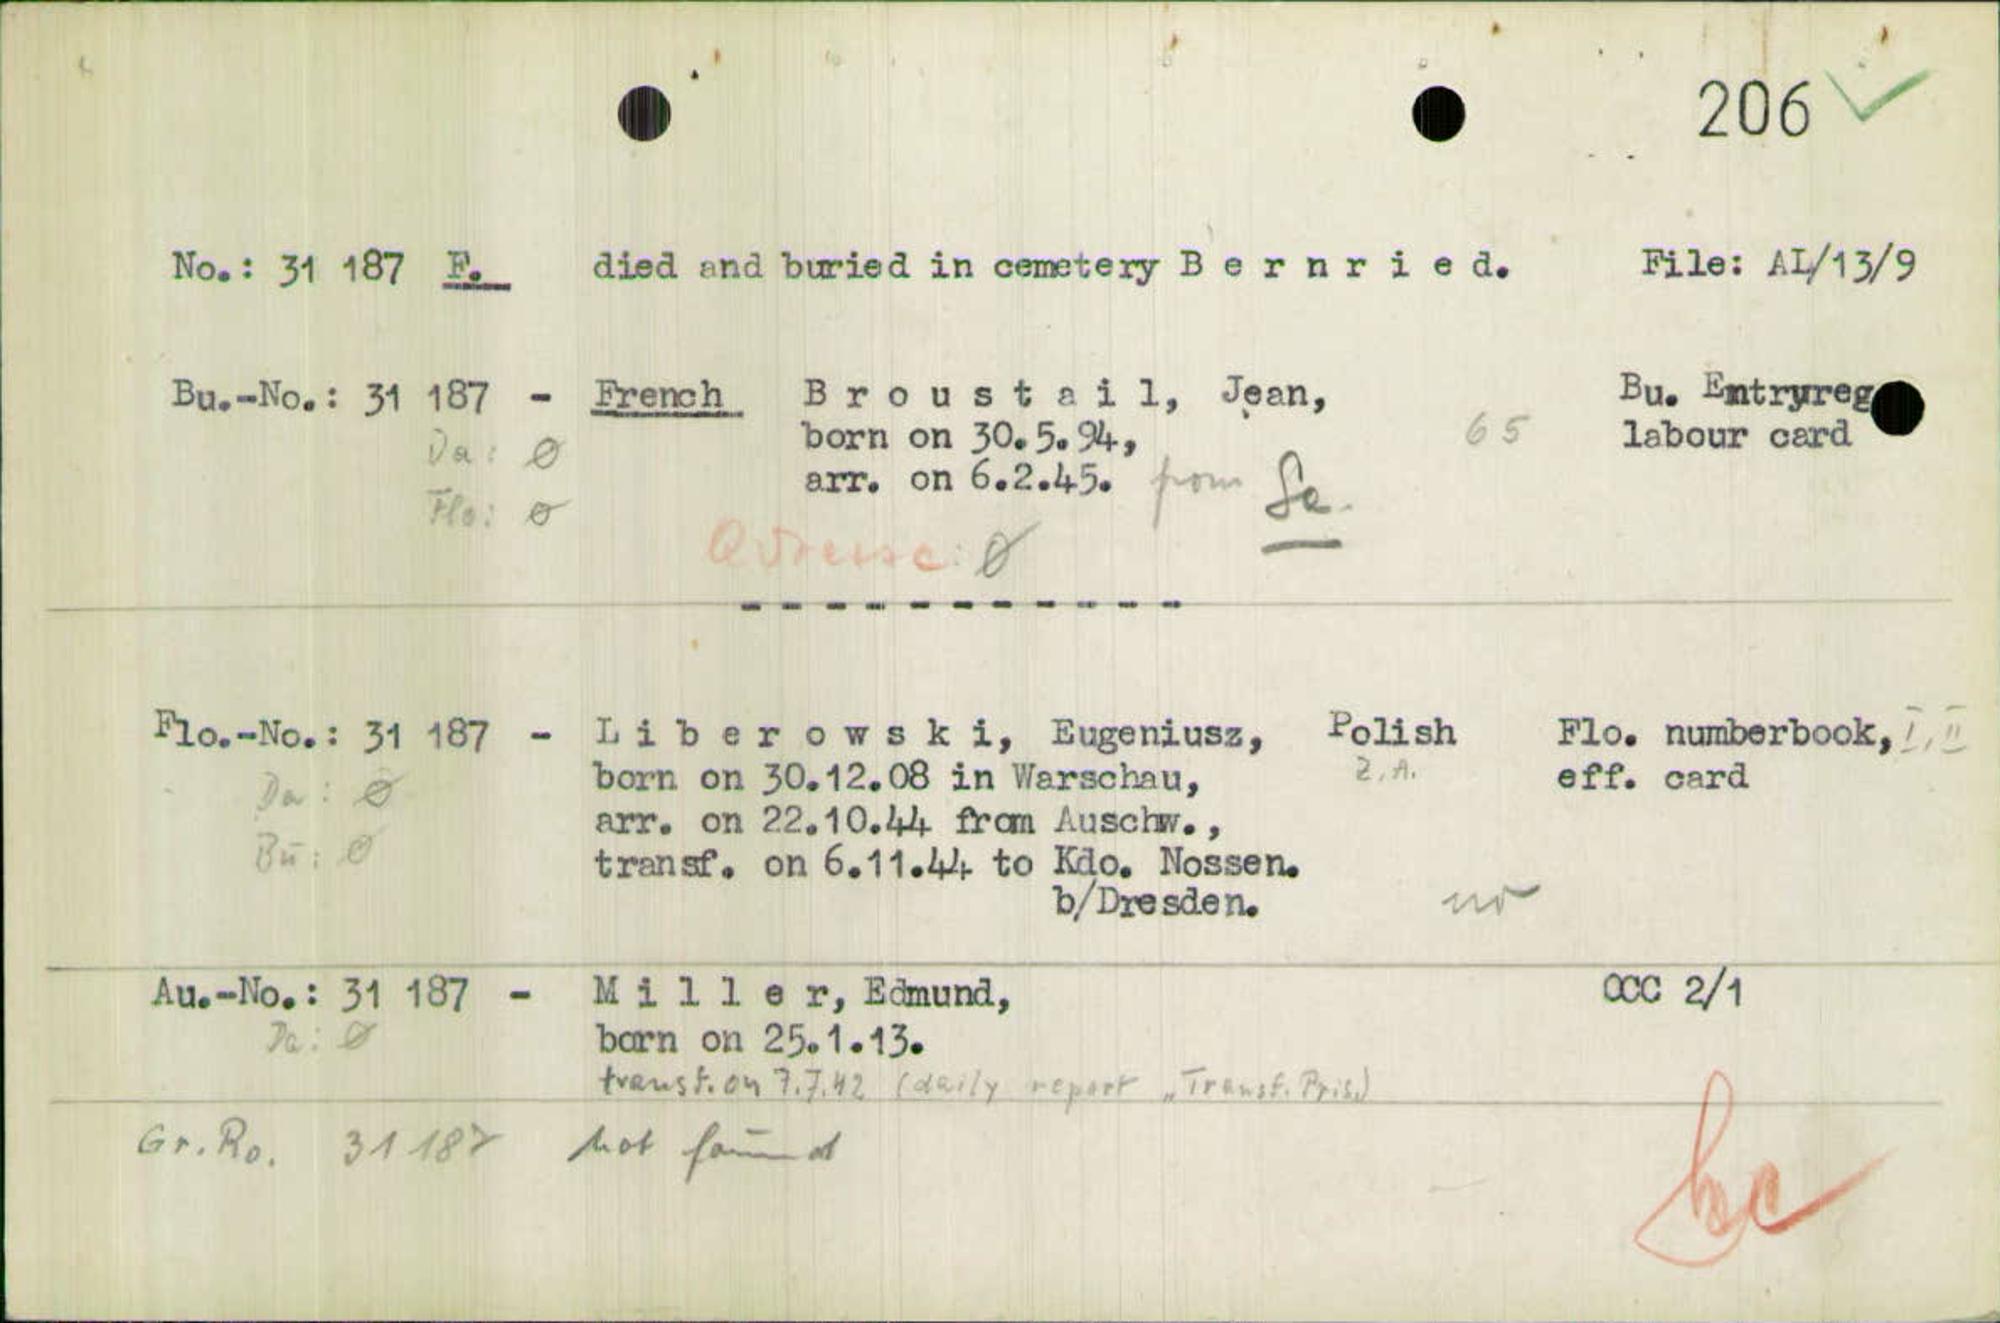 206
No.: 31 187 F. died and buried in cemetery B e r n r i e d. File: AL/13/9
Bu.-No.: 31 187 - French B r o u s t a i l, Jean, Bu. Entryreg
Da: ø born on 30.5.94, 65 labour card
Flo: ø arr. on 6.2.45. from Sa.
Adresse: ø
- - - - - - - - - - -
Flo.-No.: 31 187 - L i b e r o w s k i, Eugeniusz, Polish Flo. numberbook, I, II
Da: ø born on 30.12.08 in Warschau, Z.A. eff. card
Bu: ø arr. on 22.10.44 from Auschw.,
transf. on 6.11.44 to Kdo. Nossen.
b/Dresden.
Au.-No.: 31 187 - M i l l e r, Edmund, OCC 2/1
Da: ø born on 25.1.13.
transf. on 7.7.42 (daily report „Transf. Pris.)
Gr. Ro. 31 187 not found